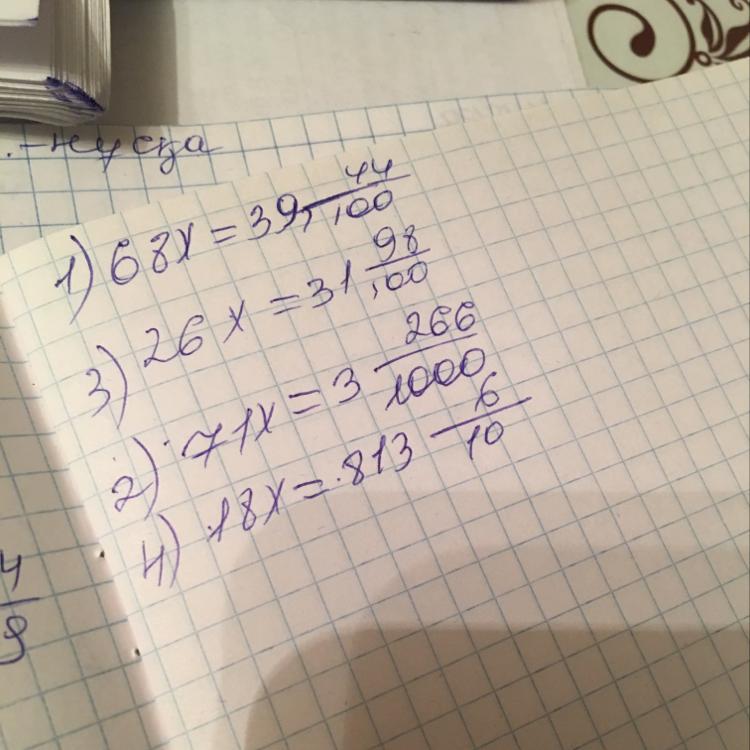 .-нусқа
1) 68x = 39, 44/100
3) 26x = 31 98/100
2) 71x = 3 266/1000
4) 18x = 813 6/10
4/9